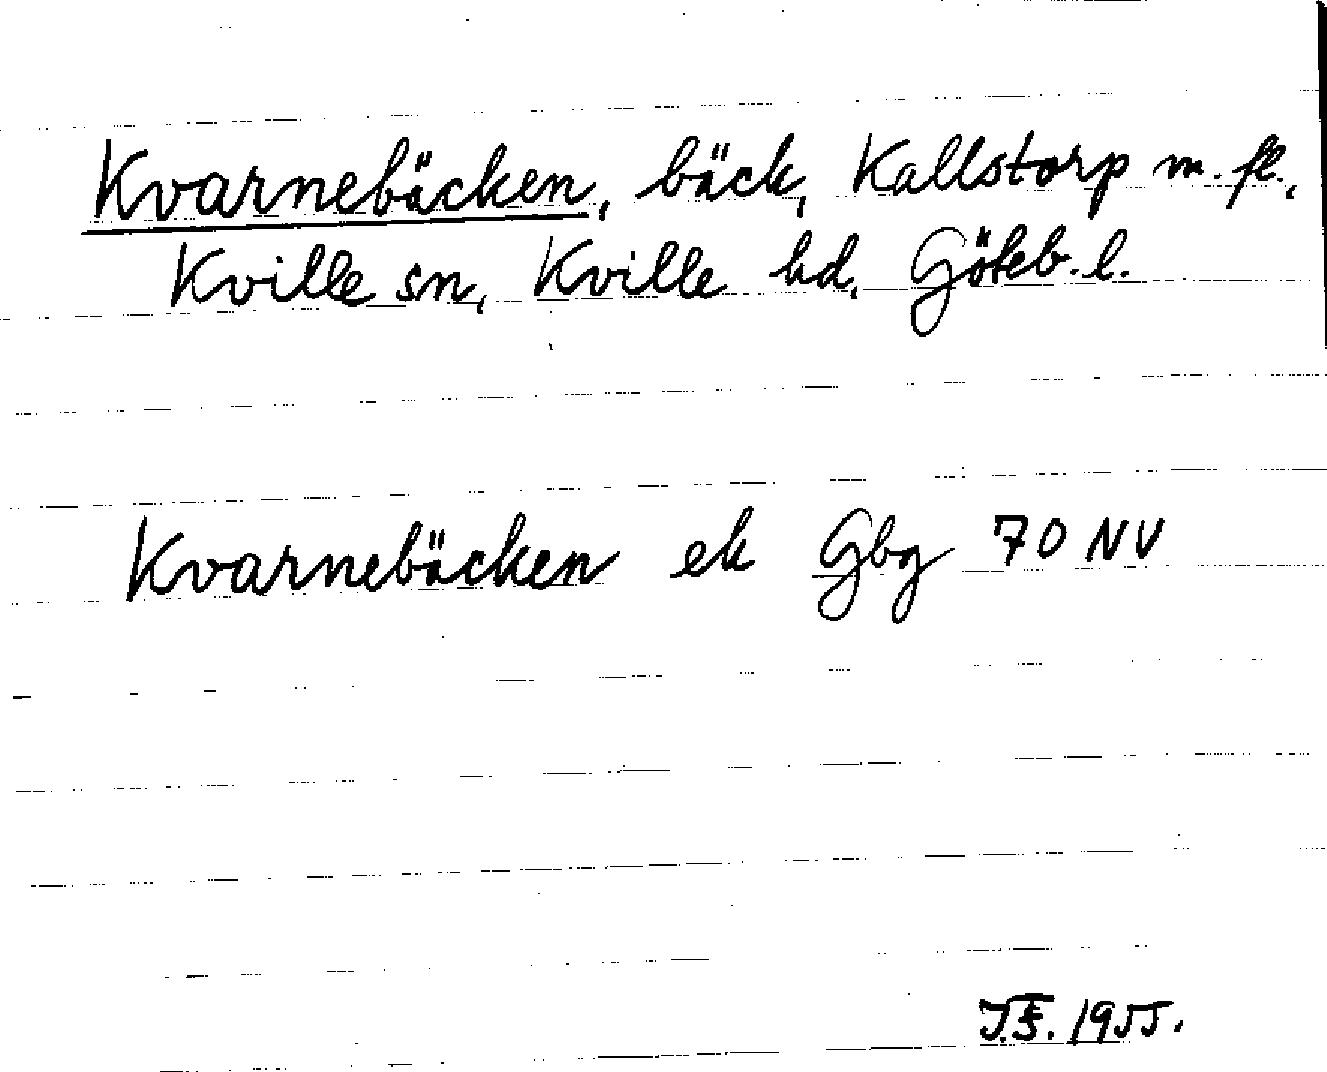 Kvarnebäcken, bäck, Kallstorp m. fl.,
Kville sn, Kville hd, Göteb. l.
Kvarnebäcken ek Gbg 70 NV
1955.